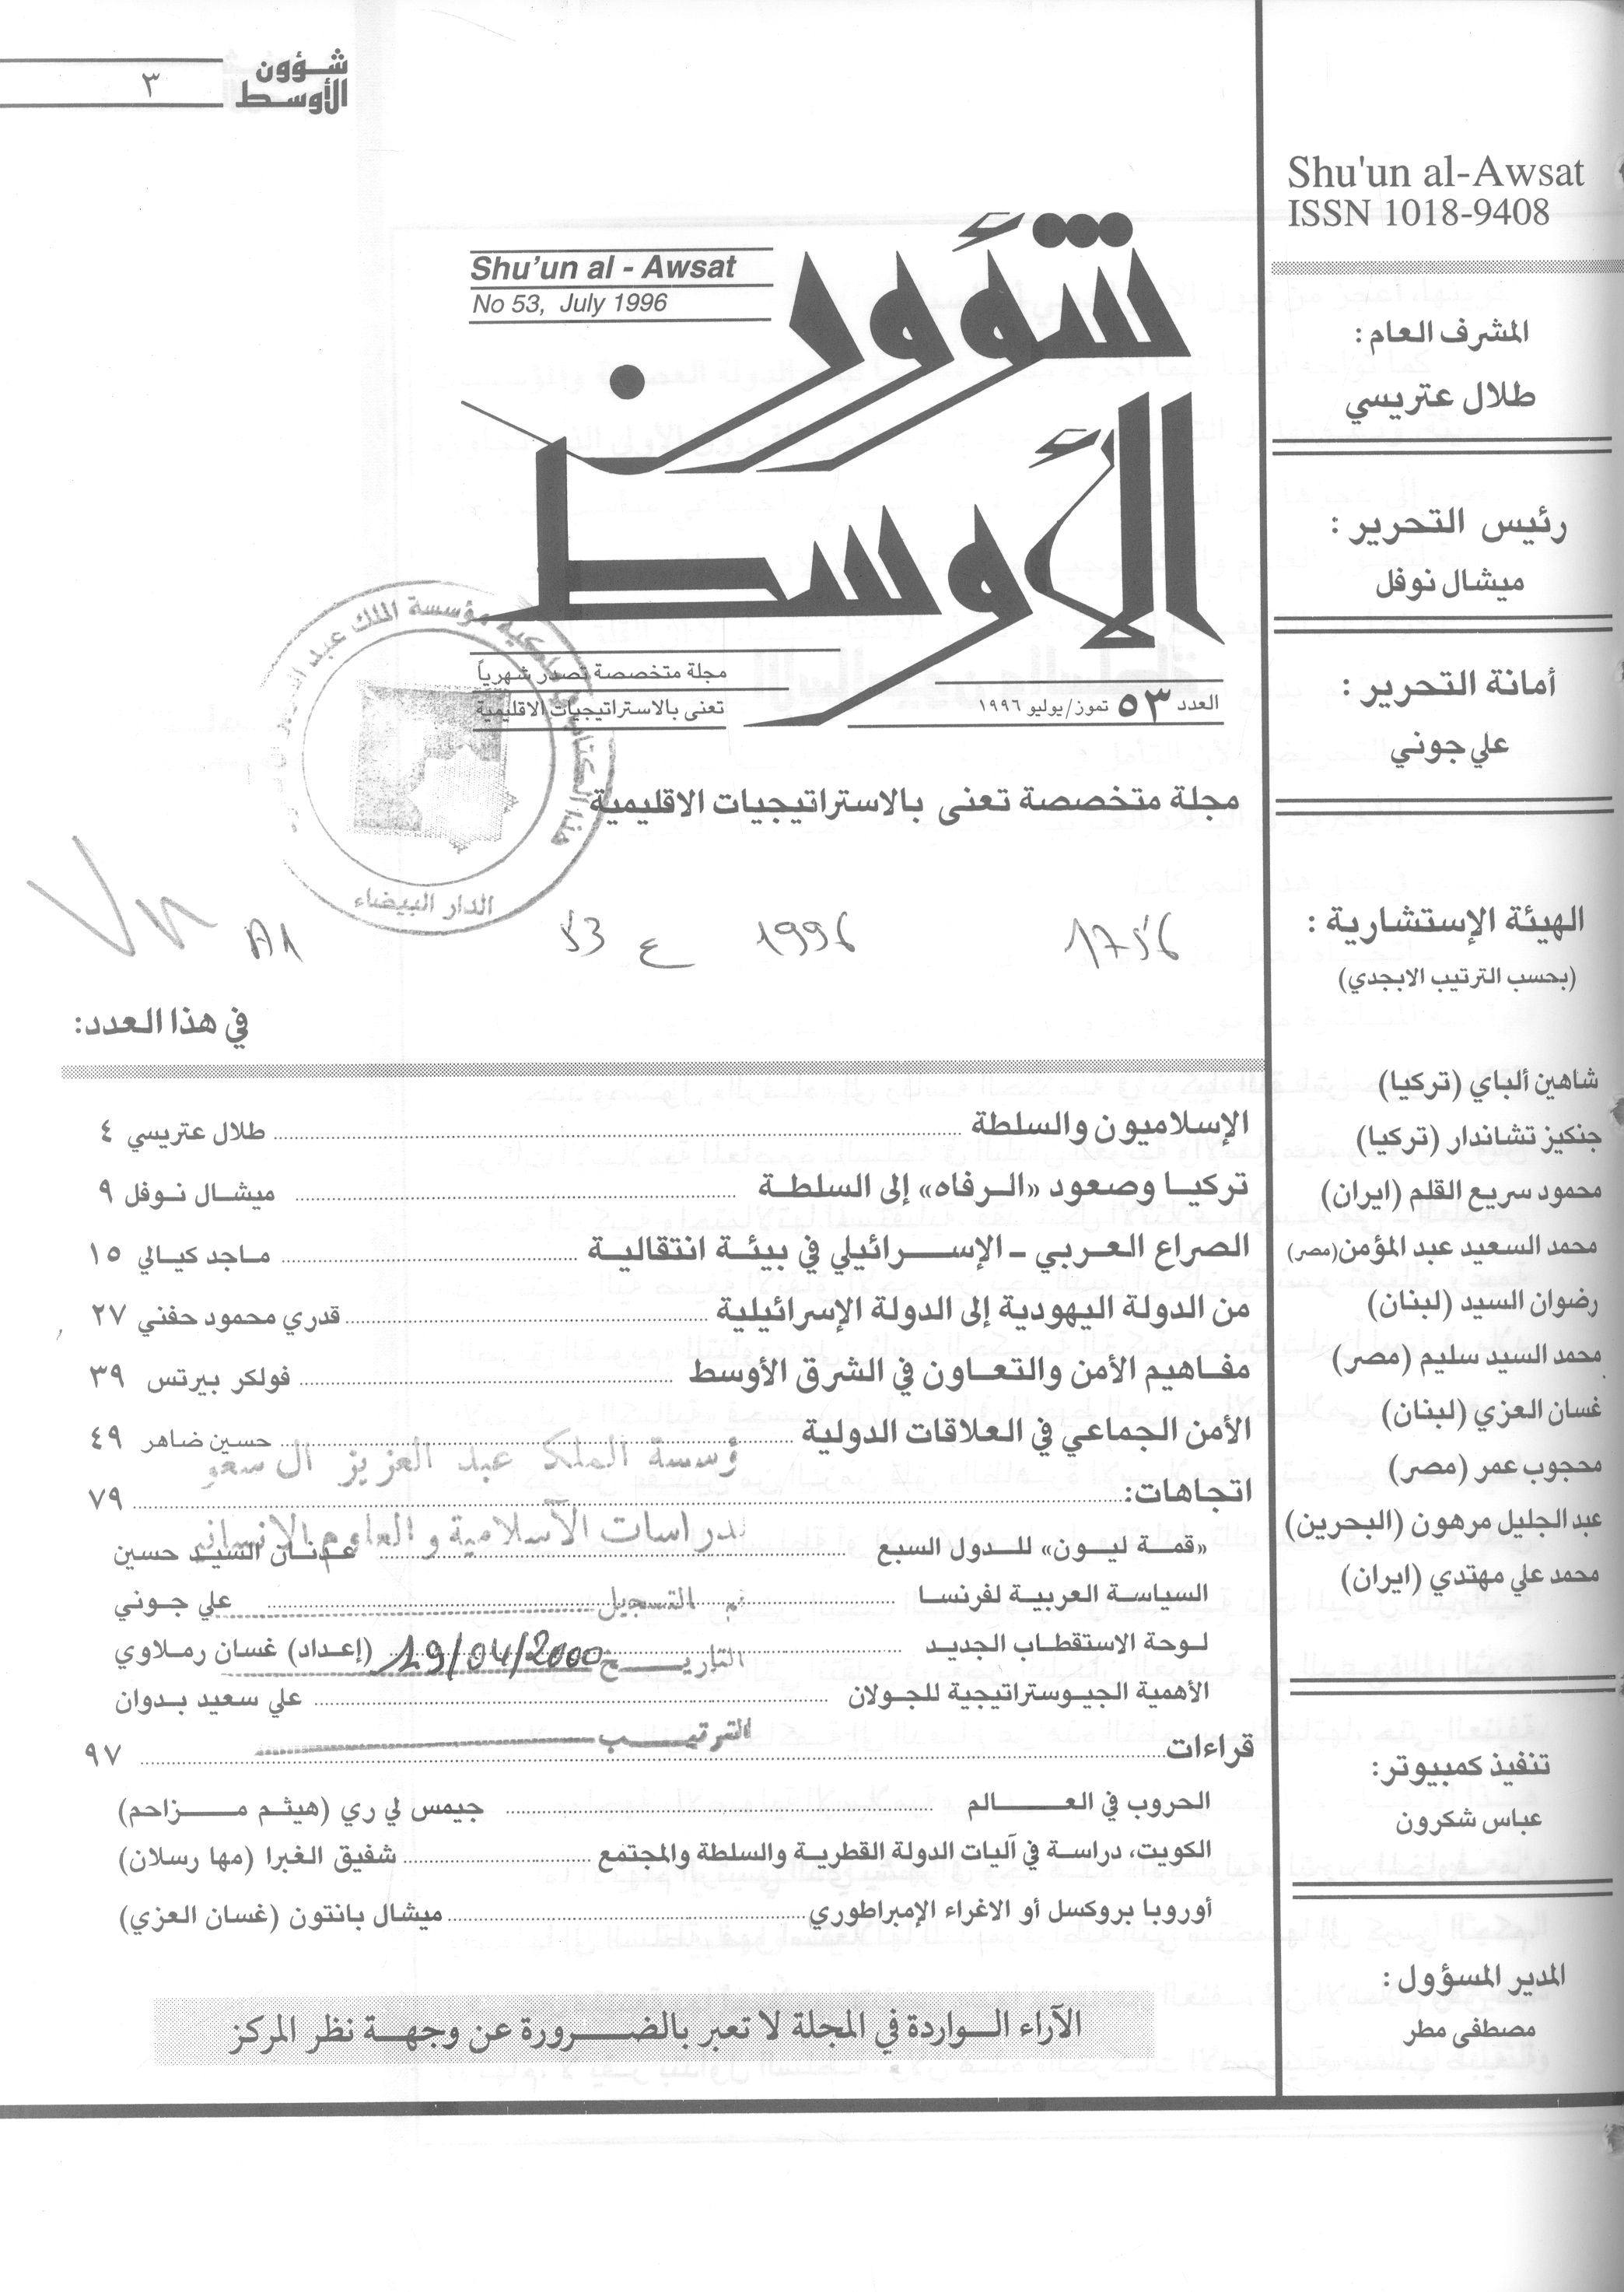 شؤون
الأوسط
٣
Shu'un al-Awsat
ISSN 1018-9408
المشرف العام :
طلال عتريسي
رئيس التحرير :
ميشال نوفل
أمانة التحرير :
علي جوني
الهيئة الإستشارية :
(بحسب الترتيب الابجدي)
شاهين ألباي (تركيا)
جنكيز تشاندار (تركيا)
محمود سريع القلم (ايران)
محمد السعيد عبد المؤمن (مصر)
رضوان السيد (لبنان)
محمد السيد سليم (مصر)
غسان العزي (لبنان)
محجوب عمر (مصر)
عبد الجليل مرهون (البحرين)
محمد علي مهتدي (ايران)
تنفيذ كمبيوتر:
عباس شكرون
المدير المسؤول :
مصطفى مطر
Shu'un al - Awsat
No 53, July 1996
شؤون
الأوسط
مجلة متخصصة تصدر شهرياً
تعنى بالاستراتيجيات الاقليمية
العدد ٥٣ تموز/يوليو ١٩٩٦
مؤسسة الملك عبد
الدار البيضاء
مجلة متخصصة تعنى بالاستراتيجيات الاقليمية
1756 1996 ع 53 A1
في هذا العدد:
الإسلاميون والسلطة ........ طلال عتريسي ٤
تركيا وصعود «الرفاه» إلى السلطة ........ ميشال نوفل ٩
الصراع العربي - الإسرائيلي في بيئة انتقالية ........ ماجد كيالي ١٥
من الدولة اليهودية إلى الدولة الإسرائيلية ........ قدري محمود حفني ٢٧
مفاهيم الأمن والتعاون في الشرق الأوسط ........ فولكر بيرتس ٣٩
الأمن الجماعي في العلاقات الدولية ........ حسين ضاهر ٤٩
ؤسسة الملك عبد العزيز ال سعو
اتجاهات: ........ ٧٩
لدراسات الاسلامية و العلوم الانسانية
«قمة ليون» للدول السبع ........ عدنان السيد حسين
السياسة العربية لفرنسا ........ علي جوني
التسجيل
لوحة الاستقطاب الجديد ........ (إعداد) غسان رملاوي
التاريخ 19/04/2000
الأهمية الجيوستراتيجية للجولان ........ علي سعيد بدوان
الترتيب
قراءات ........ ٩٧
الحروب في العالم ........ جيمس لي ري (هيثم مزاحم)
الكويت، دراسة في آليات الدولة القطرية والسلطة والمجتمع ........ شفيق الغبرا (مها رسلان)
أوروبا بروكسل أو الاغراء الإمبراطوري ........ ميشال بانتون (غسان العزي)
الآراء الواردة في المجلة لا تعبر بالضرورة عن وجهة نظر المركز